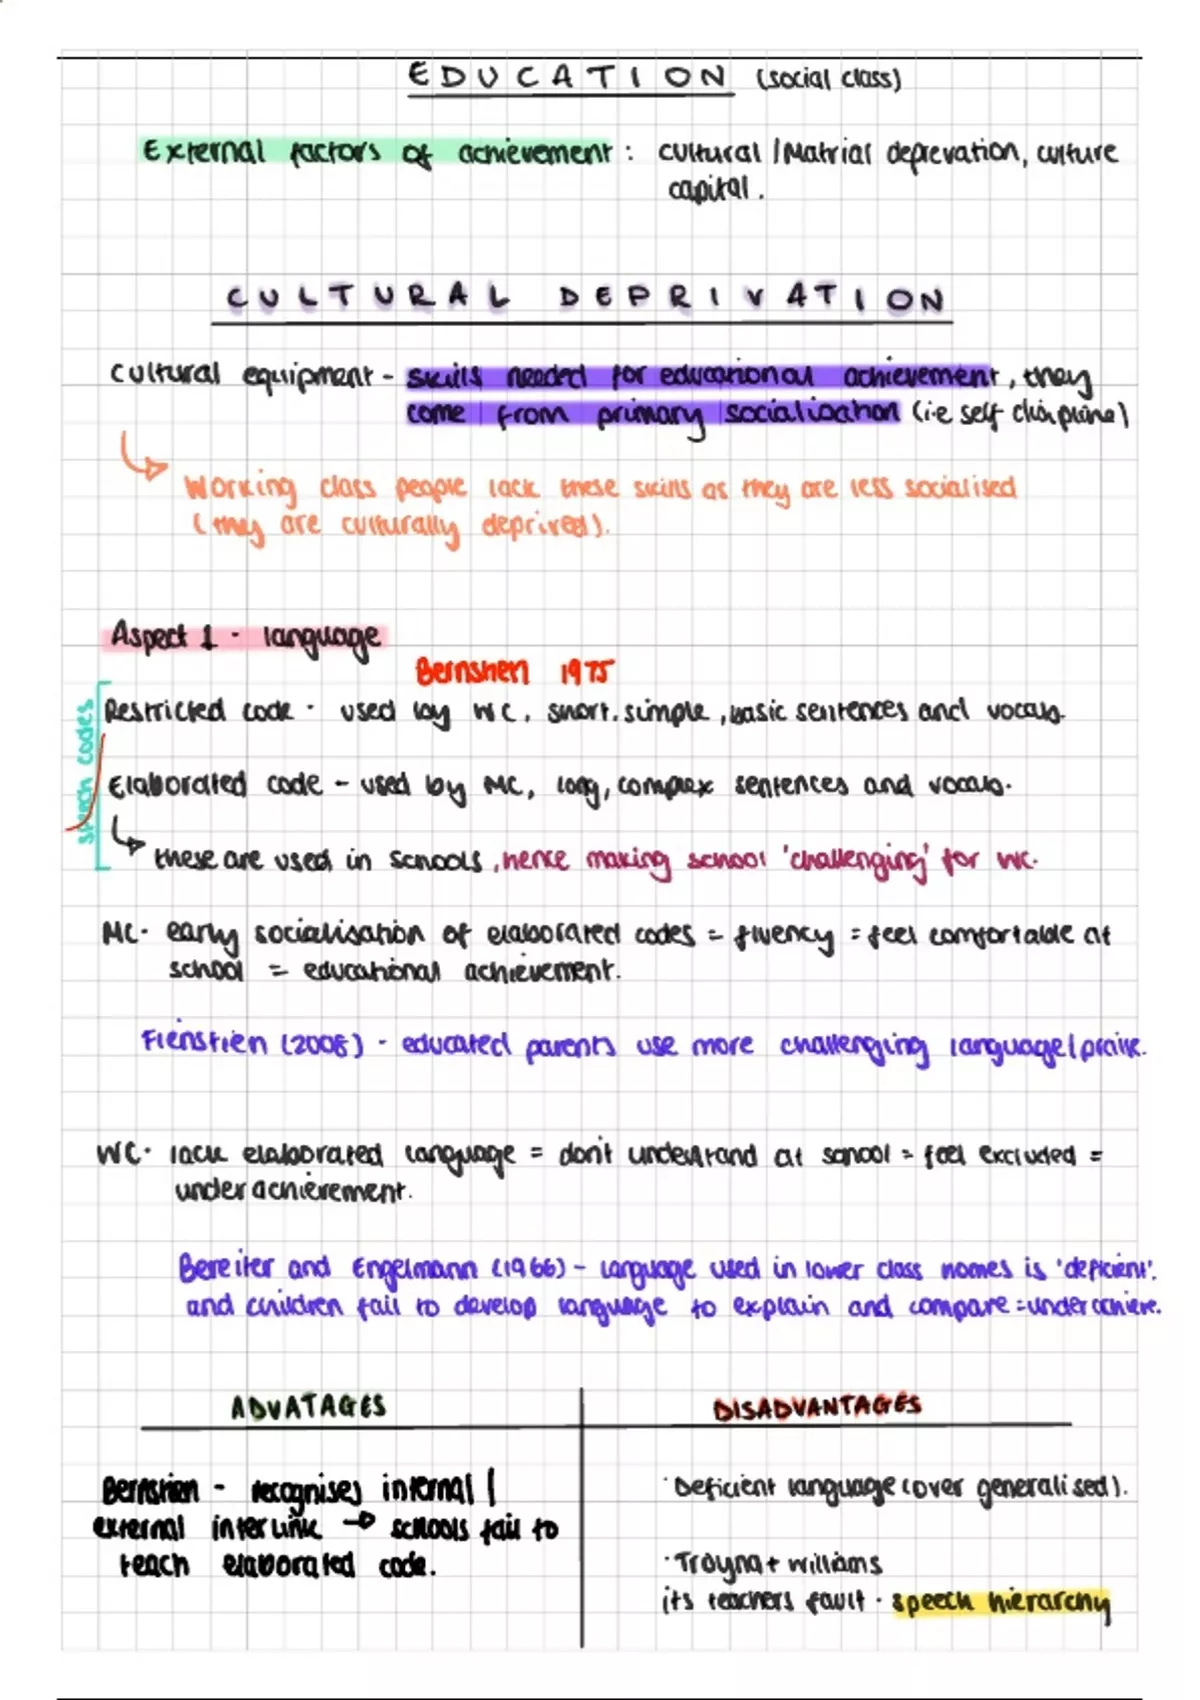 EDUCATION (social class)
External factors of achievement: cultural/Matrial deprevation, culture
capital.
CULTURAL DEPRIVATION
cultural equipment - skills needed for educational achievement, they
come from primary socialisation (i.e self discipline)
Working class people lack these skills as they are less socialised
(they are culturally deprived).
Aspect 1 - language
Bernstien 1975
speech codes
Restricted code - used by WC, short, simple, basic sentences and vocab.
Elaborated code - used by MC, long, complex sentences and vocab.
these are used in schools, hence making school 'challenging' for WC.
MC - early socialisation of elaborated codes = fluency = feel comfortable at
school = educational achievement.
Fienstien (2008) - educated parents use more challenging language/praise.
WC - lack elaborated language = don't understand at school = feel excluded =
underachievement.
Bereiter and Engelmann (1966) - language used in lower class homes is 'deficient'.
and children fail to develop language to explain and compare = underachieve.
ADVATAGES
DISADVANTAGES
Bernstien - recognises internal/
external interlink → schools fail to
teach elaborated code.
· Deficient language (over generalised).
· Troyna + williams
its teachers fault - speech hierarchy